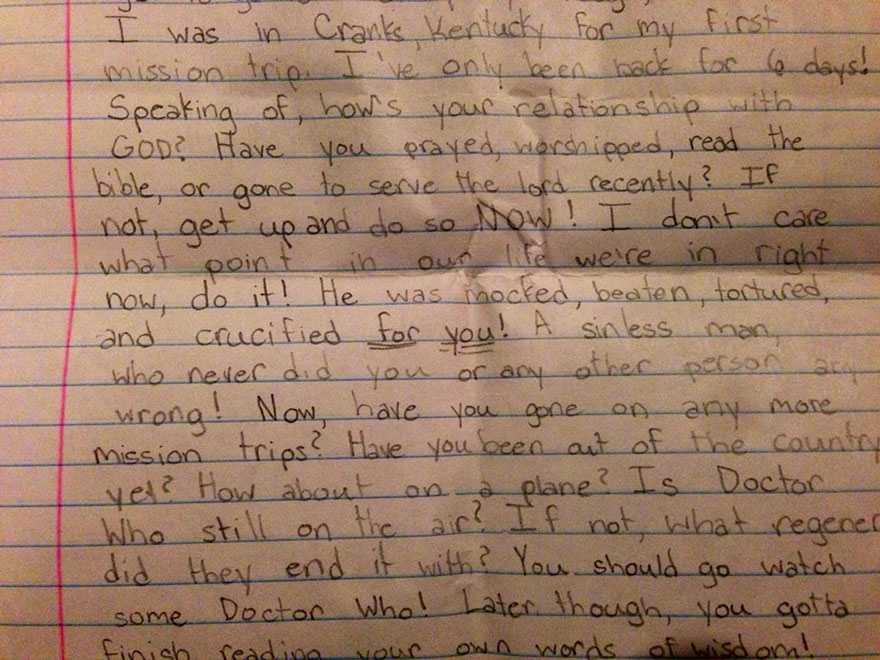 I was in Cranks, Kentucky for my first
mission trip. I've only been back for 6 days!
Speaking of, how's your relationship with
GOD? Have you prayed, worshipped, read the
bible, or gone to serve the lord recently? If
not, get up and do so NOW! I don't care
what point in our life we're in right
now, do it! He was mocked, beaten, tortured,
and crucified for you! A sinless man,
who never did you or any other person any
wrong! Now, have you gone on any more
mission trips? Have you been out of the country
yet? How about on a plane? Is Doctor
Who still on the air? If not, what regener
did they end it with? You should go watch
some Doctor Who! Later though, you gotta
finish reading your own words of wisdom!